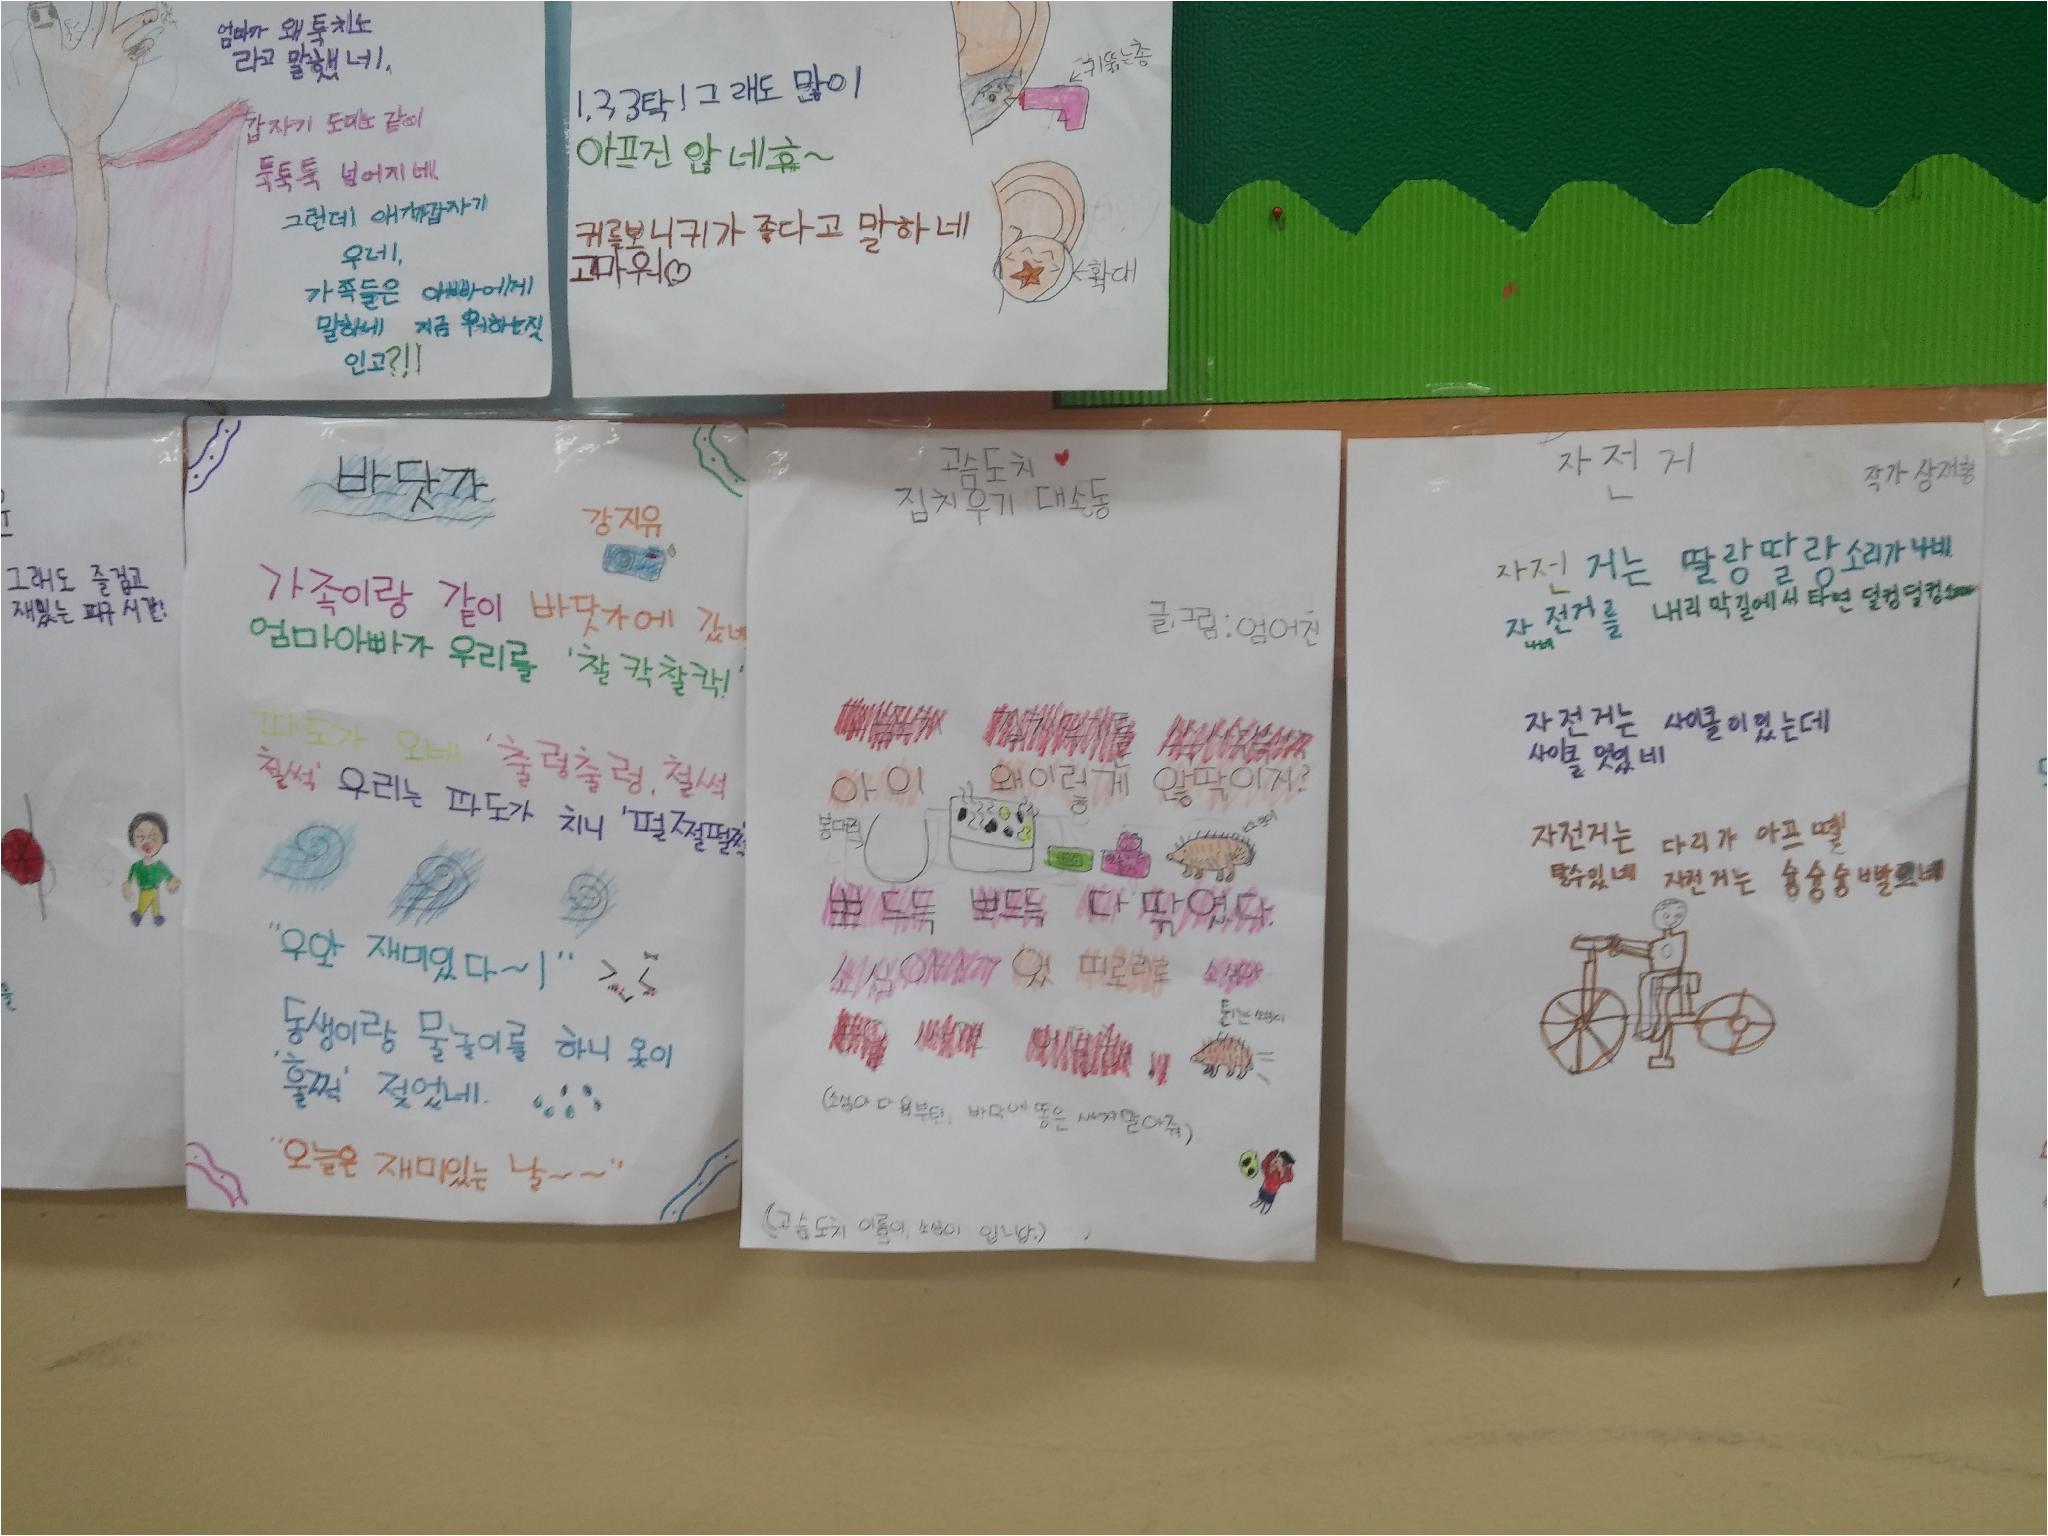 엄마가 왜 툭치노
라고 말했네.
갑자기 도미노 같이
툭툭툭 넘어지네.
그런데 애가 갑자기
우네.
가족들은 아빠에게
말하네 지금 뭐하는짓
인고?!!
1,2,3탁! 그래도 많이
아프진 않네 휴~
귀를보니귀가 좋다고 말하네
고마워♡
←귀뚫는총
←확대
그래도 즐겁고
재밌는 피구 시간!
바닷가
강지유
가족이랑 같이 바닷가에 갔네
엄마아빠가 우리를 '찰칵찰칵!'
파도가 오네 '출렁출렁, 철썩
철썩' 우리는 파도가 치니 '펄쩍펄쩍
"우와 재미있다~!"
동생이랑 물놀이를 하니 옷이
'훌쩍' 젖었네.
"오늘은 재미있는 날~~"
고슴도치 ♥
집치우기 대소동
글,그림:엄어진
아이 왜이렇게 않딱이지?
뽀드득 뽀드득 다 딲였다.
(소심아 다음부턴, 바닥에 똥은 싸지말아줘)
(고슴도치 이름이, 소심이 입니답.)
자전거
작가 상재형
자전거는 딸랑딸랑소리가 나네
자전거를 내리막길에서 타면 덜컹덜컹
나네
자전거는 사이클이있는데
사이클 멋있네
자전거는 다리가 아프 뗄
탈수있네 자전거는 슝슝슝 빠르네